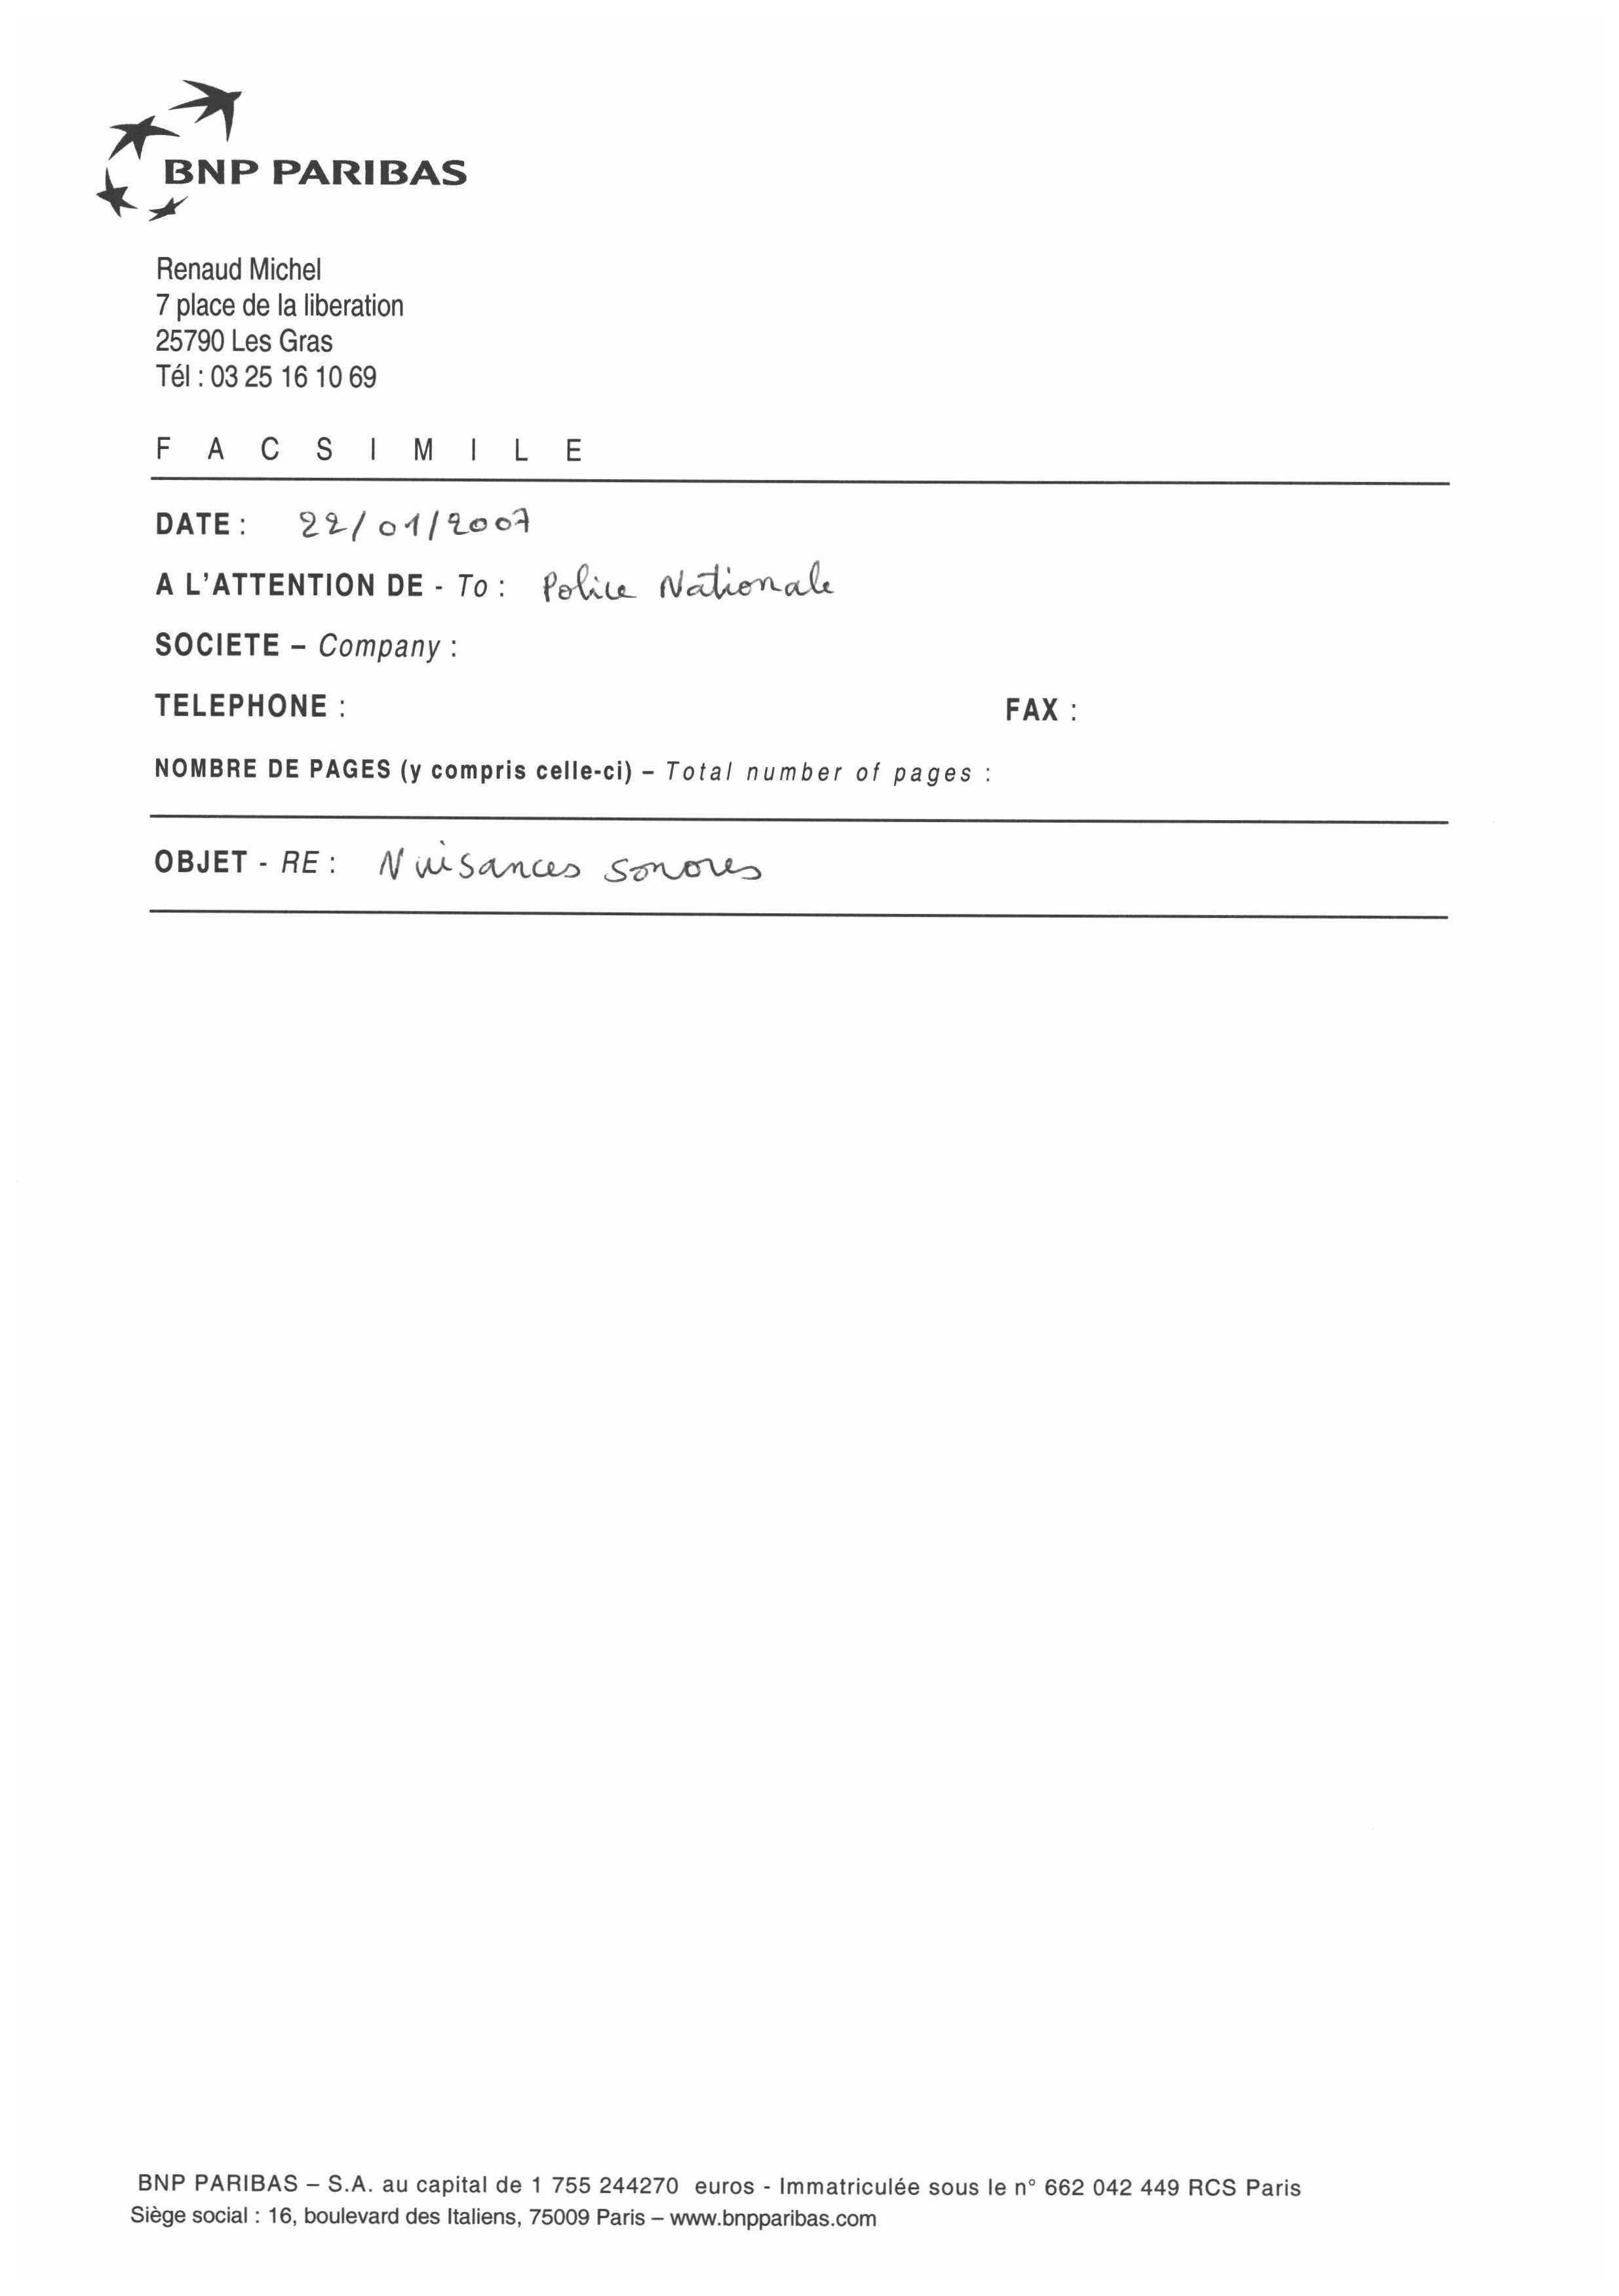 BNP PARIBAS
Renaud Michel
7 place de la liberation
25790 Les Gras
Tél : 03 25 16 10 69
F A C S I M I L E
DATE : 22/01/2007
A L'ATTENTION DE - To : Police Nationale
SOCIETE – Company :
TELEPHONE : FAX :
NOMBRE DE PAGES (y compris celle-ci) – Total number of pages :
OBJET - RE : Nuisances sonores
BNP PARIBAS – S.A. au capital de 1 755 244270 euros - Immatriculée sous le n° 662 042 449 RCS Paris
Siège social : 16, boulevard des Italiens, 75009 Paris – www.bnpparibas.com